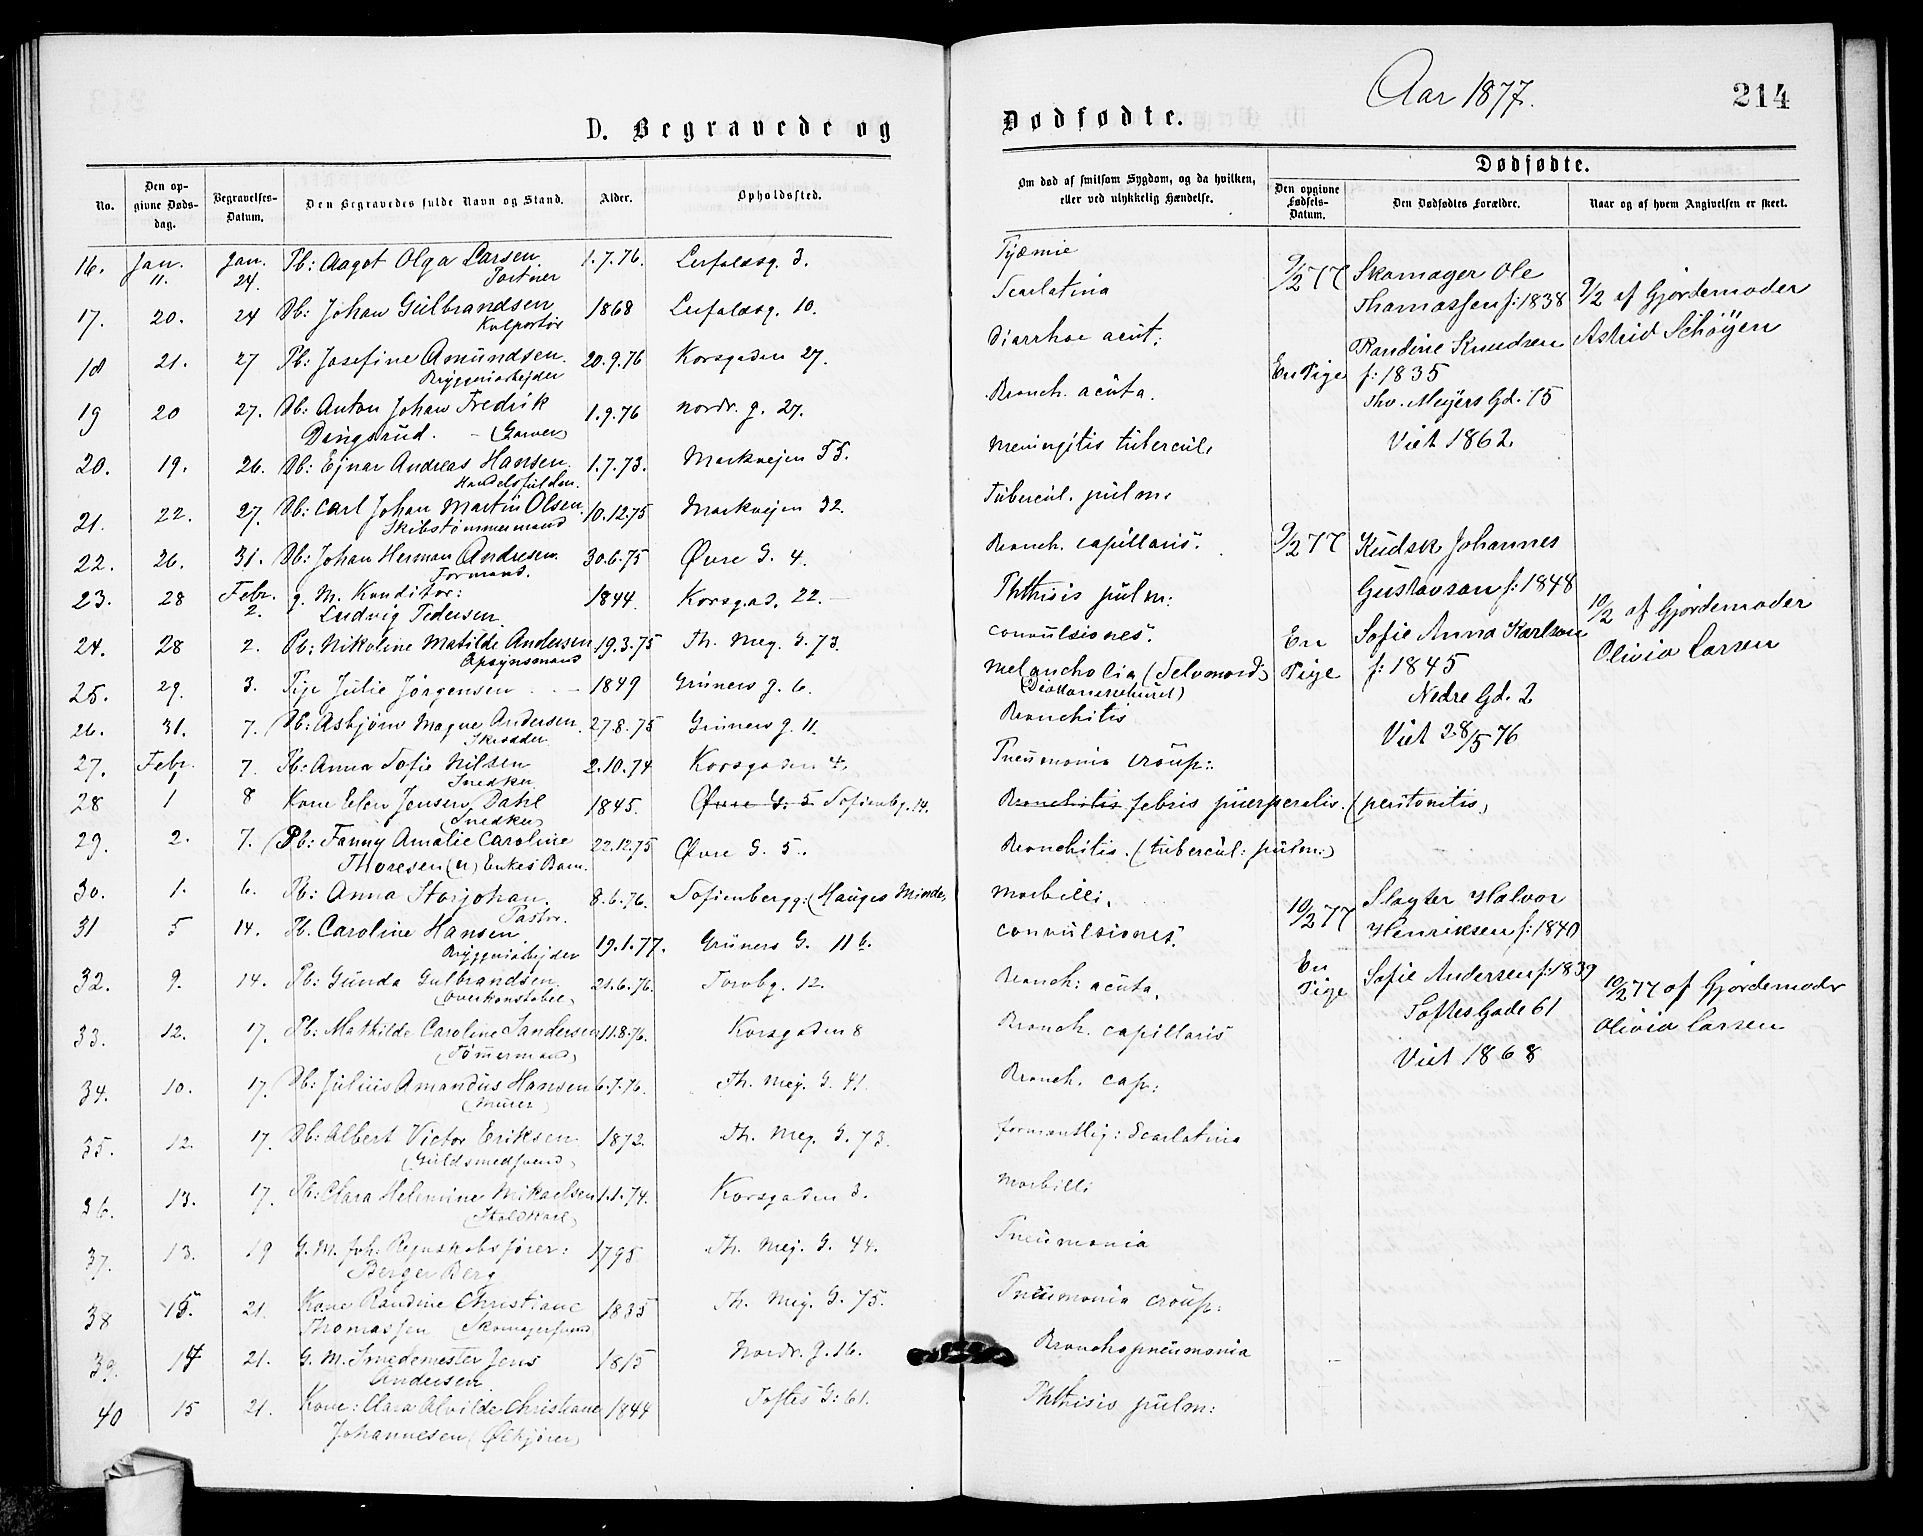 D. Begravede og
Dødfødte.
Aar 1877.
214
No.
Den opgivne Dødsdag.
Begravelses-Datum.
Den Begravedes fulde Navn og Stand.
Alder.
Opholdssted.
Om død af smitsom Sygdom, og da hvilken, eller ved ulykkelig Hændelse.
Dødfødte.
Den opgivne Fødsels-Datum.
Den Dødfødtes Forældre.
Naar og af hvem Angivelsen er skeet.
16. Jan. 11. Jan. 24. Pb: Aagot Olga Larsen 1.7.76. Lerfaldsg. 3. Pyæmie
Portner
17. 20. 24 Db: Johan Gulbrandsen 1868 Lerfaldsg. 10. Scarlatina
Kolportør
18 21. 27 Pb: Josefine Amundsen. 20.9.76 Korsgaden 27. Diarrhoe acut.
Bryggeriarbejder
19 20 27. Db: Anton Johan Fredrik 1.9.76 Nordr. g. 27. Bronch. acuta.
Dengsrud. - (Garver)
20. 19. 26. Db: Ejnar Andreas Hansen. 1.7.73. Markvejen 55. Meningitis tubercul.
Handelsfuldm.
21. 22. 27. Db: Carl Johan Martin Olsen. 10.12.75 Markvejen 32. Tubercul. pulm.
Skibstømmermand
22. 26. 31. Db: Johan Herman Andresen. 30.6.75 Øvre G. 4. Bronch. capillaris.
Formand.
23. 28 Febr. 2. g. M. Konditor: 1844. Korsgad. 22. Phthisis pulm:
Ludvig Pedersen.
24. 28 2. Pb: Nikoline Matilde Andersen 19.3.75 Th. Meg. G. 73. convulsiones.
Opsynsmand
25. 29. 3. Pige Julie Jørgensen 1849 Grüners g. 6. Melancholia (Selvmord)
(Diakonissehuset)
26. 31. 7. Db: Asbjørn Magne Andersen. 27.8.75 Grüners g. 11. Bronchitis
Skrædder
27. Febr. 1 7. Pb: Anna Sofie Nilsen 2.10.74 Korsgaden 4. Pneumonia croup:
Snedker
28 1 8 Kone Elen Jensen Dahl 1845. Øvre G. 5 Sofienbg. 14. Bronchitis febris puerperalis. (peritonitis)
(Snedker)
29. 2. 7. Pb: Fanny Amalie Caroline 22.12.75 Øvre G. 5. Bronchitis. (tubercul: pulm:)
Thoresen (u) Enkes Barn.
30. 1. 6. Pb: Anna Storjohan. 8.6.76. Sofienbergg: (Hauges Minde) Morbilli.
Pastor.
31 5 14. Pb. Caroline Hansen. 19.1.77. Grüners G. 11 b. convulsiones.
Bryggeriarbejder
32. 9. 14. Pb: Gunda Gulbrandsen 21.6.76. Torvbg. 12. Bronch: acuta.
(Overkonstabel)
33. 12. 17. Pb: Mathilde Caroline Sandersen 11.8.76. Korsgaden 8 Bronch. capillaris
(Tømmermand)
34. 10. 17. Db: Julius Amandus Hansen 6.7.76. Th. Mej. G. 41. Bronch. cap:
(Murer)
35. 12. 17. Db: Albert Victor Eriksen 1872. Th. Mej. G. 73. formentlig: Scarlatina
(Guldsmedsvend)
36. 13. 17. Pb: Clara Helemine Mikaelsen 1.1.74. Korsgaden 3. Morbilli
(Staldkarl)
37. 13. 19 G. M. fhv. Regnskabsfører: 1795 Th. Mej. G. 44. Pneumonia
Berger Berg
38 15. 21. Kone Randine Christiane 1835 Th. Mej. G. 75. Pneumonia croup:
Thomassen (Skomagersvend)
39. 14 21. G. M. Smedemester Jens 1815 Nordr. g. 16. Bronchopneumonia
Andersen.
40 15 21. Kone: Clara Alvilde Christiane 1844 Toftes G: 61. Phthisis pulm:
Johannesen (Ølkjører)
9/2 77 Skomager Ole
Thomassen f: 1838
Randine Knudsen
En Pige f: 1835
Thv. Meyers Gd. 75
Viet 1862.
9/2 af Gjordemoder
Astrid Schøyen
9/2 77 Kudsk Johannes
Gustavsen f: 1848
En Pige Sofie Anna Karlson
f: 1845
Nedre Gd. 2
Viet 28/5 76
10/2 af Gjordemoder
Olivia Larsen
10/2 77 Slagter Halvor
Henriksen f: 1840
En Pige Sofie Andersen f: 1839
Toftes Gade 61
Viet 1868
10/2 77 af Gjordemoder
Olivia Larsen